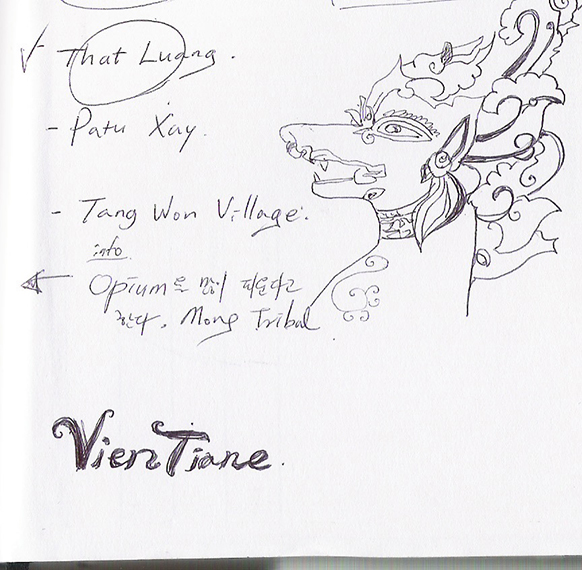 √ That Luang.
- Patu Xay.
- Tang Won Village.
info
Opium을 많이 피운다고
한다. Mong Tribal
VienTiane.